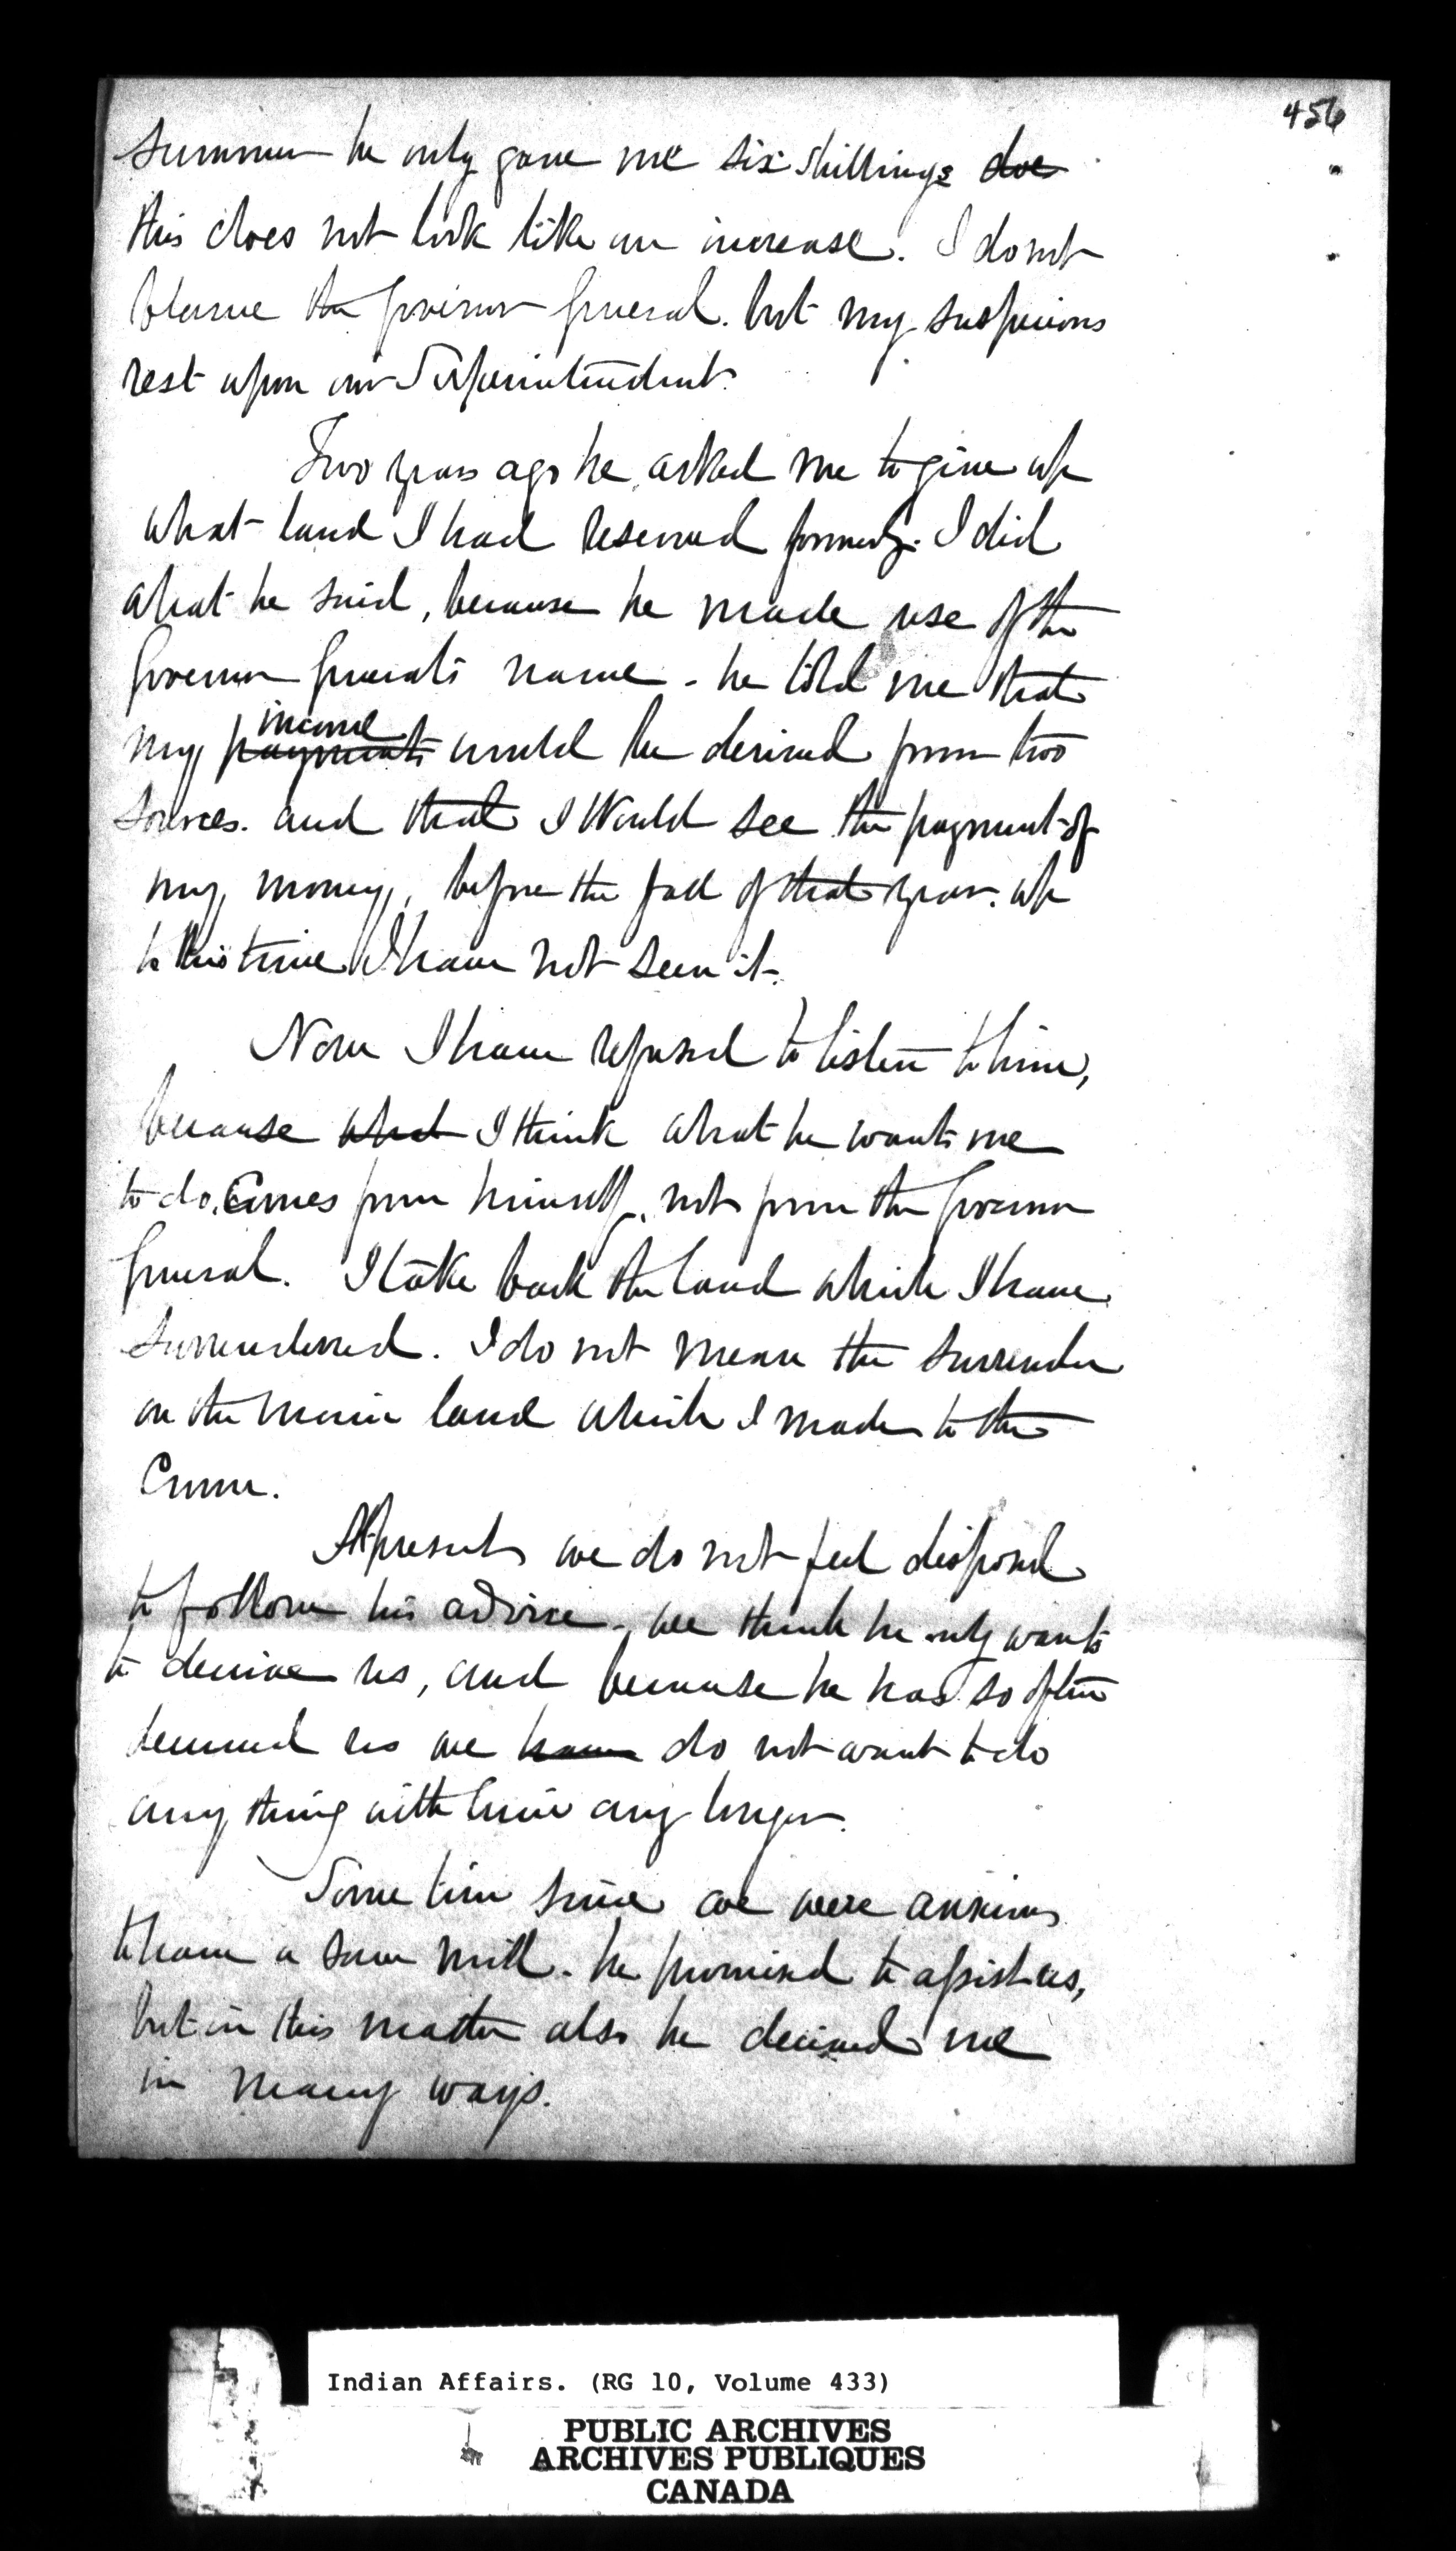 456
Summer he only gave me six shillings does
this does not look like an increase. I do not
blame the Governor General. but my suspicions
rest upon our Superintendent.
Two years ago he asked me to give up
what land I had reserved formerly. I did
what he said, because he made use of the
Governor Generals name - he told me that
income
my payments would be derived from two
sources. and that I would see the payment of
my money, before the fall of that year. up
to this time I have not seen it.
Now I have refused to listen to him,
because what I think what he wants me
to do. Comes from himself, not from the Governor
General. I take back the land which I have
surrendered. I do not mean the surrender
on the main land which I made to the
Crown.
At present we do not feel disposed
to follow his advice. we think he only wants
to deceive us, and because he has so often
deceived us we have do not want to do
any thing with him any longer.
Some time since we were anxious
to have a saw mill. he promised to assist us,
but in this matter also he deceived me
in many ways.
Indian Affairs. (RG 10, Volume 433)
PUBLIC ARCHIVES
ARCHIVES PUBLIQUES
CANADA